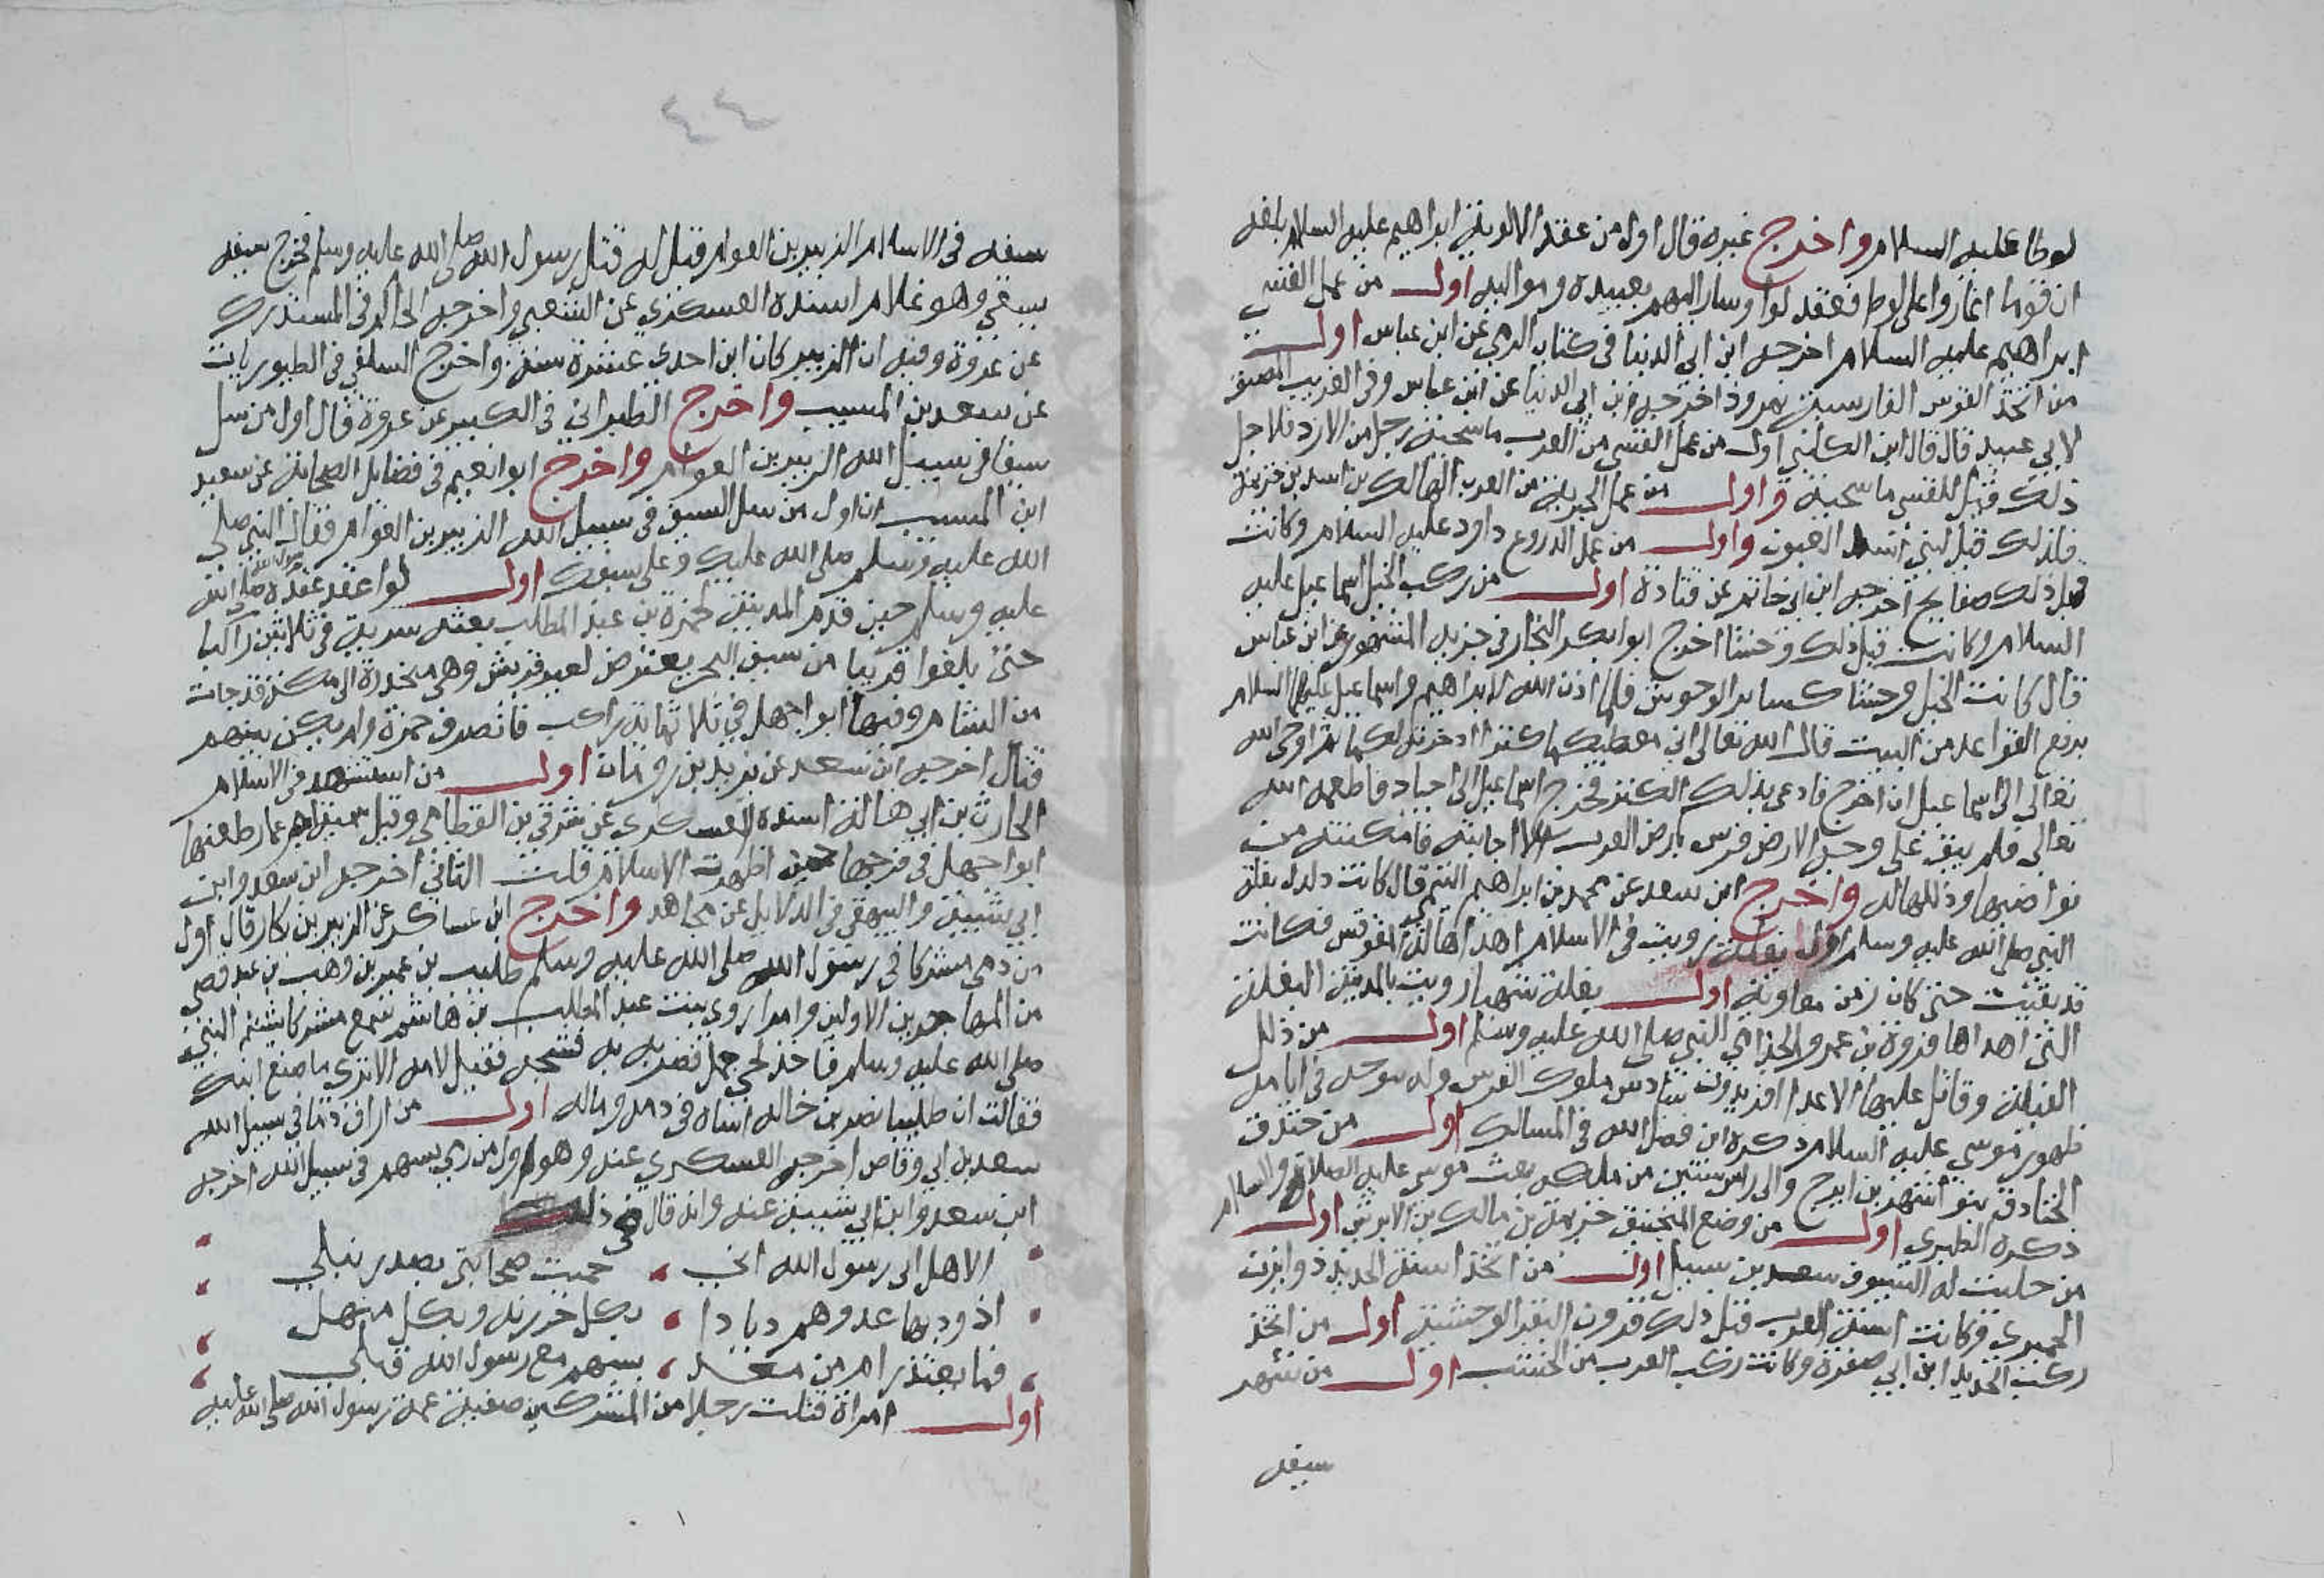 لوطا عليه السلام واخرج غيره قال اول من عقد الالوية ابراهيم عليه السلام بلغه
ان قوما اغاروا على لوط فعقد لوا وسار اليهم بعبيده ومواليه اول من عمل القسي
ابراهيم عليه السلام اخرجه ابن ابي الدنيا في كتاب الرمي عن ابن عباس اول
من اتخذ القوس الفارسية نمرود اخرجه ابن ابي الدنيا عن ابن عباس وفي الغريب المصنف
لابي عبيد قال قال ابن الكلبي اول من عمل القسي من العرب ماسخة رجل من الازد فلاجل
ذلك قيل للقسي ماسخية واول من عمل الحديد من العرب الهالك بن اسد بن خزيمة
فلذلك قيل لبني اسد القيون واول من عمل الدروع داود عليه السلام وكانت
قبل ذلك صفايح اخرجه ابن ابي حاتم عن قتادة اول من ركب الخيل اسماعيل عليه
السلام وكانت قبل ذلك وحشا اخرج ابو بكر النجار في جزيه المشهور عن ابن عباس
قال كانت الخيل وحشا كساير الوحوش فلما اذن الله لابراهيم واسماعيل عليهما السلام
برفع القواعد من البيت قال الله تعالى اني معطيكما كنزا ادخرته لكما ثم اوحى الله
تعالى الى اسماعيل ان اخرج فادعى بذلك الكنز فخرج اسماعيل الى اجياد فالهمه الله
تعالى فلم يبق على وجه الارض فرس بارض العرب الا اجابته فامكنته من
نواصيها وذللها له واخرج ابن سعد عن محمد بن ابراهيم التيمي قال كانت دلدل بغلة
النبي صلى الله عليه وسلم اول بغلة رويت في الاسلام اهداها له المقوقس فكانت
قد بقيت حتى كان زمن معاوية اول بغلة شهبا رويت بالمدينة البغلة
التي اهداها فروة بن عمرو الجذامي النبي صلى الله عليه وسلم اول من ذلل
الفيلة وقاتل عليها الاعدا افريدون سادس ملوك الفرس وله يوجد في ايامه
ظهور موسى عليه السلام ذكره ابن فضل الله في المسالك اول من خندق
الخنادق منوشهر بن ايرج والى راس ستين من ملكه بعث موسى عليه الصلاة والسلام
ذكره الطبري اول من وضع المنجنيق خزيمة بن مالك بن الابرش اول
من حليت له السيوف سعد بن سيل اول من اتخذ اسنة الحديد ذو ايزن
الحميري وكانت اسنة العرب قبل ذلك قرون البقر الوحشية اول من اتخذ
ركب الحديد ابن ابي صفرة وكانت ركب العرب من الخشب اول من شهر
سيفه
٤٤
سيفه في الاسلام الزبير بن العوام قيل له قتل رسول الله صلى الله عليه وسلم فخرج بسيفه
يسعى وهو غلام اسنده العسكري عن الشعبي واخرجه الحاكم في المستدرك
عن عروة وفيه ان الزبير كان ابن احدي عشرة سنة واخرج السلفي في الطيوريات
عن سعد بن المسيب واخرج الطبراني في الكبير عن عروة قال اول من سل
سيفا في سبيل الله الزبير بن العوام واخرج ابو نعيم في فضايل الصحابة عن سعيد
ابن المسيب ان اول من سل السيف في سبيل الله الزبير بن العوام فقال النبي صلى
الله عليه وسلم صلى الله عليك وعلى سيفك اول لوا عقد عقده رسول الله صلى الله
عليه وسلم حين قدم المدينة لحمزة بن عبد المطلب بعثه سرية في ثلاثين راكبا
حتى بلغوا قريبا من سيف البحر يعترض لعير قريش وهي منحدرة الى مكة قد جات
من الشام وفيها ابو جهل في ثلاثماية راكب فانصرف حمزة ولم يكن بينهم
قتال اخرجه ابن سعد عن يزيد بن رومان اول من استشهد في الاسلام
الحارث بن ابي هالة اسنده العسكري عن شرقي بن القطامي وقيل سمية ام عمار طعنها
ابو جهل في فرجها حين اظهرت الاسلام قلت الثاني اخرجه ابن سعد وابن
ابي شيبة والبيهقي في الدلايل عن مجاهد واخرج ابن عساكر عن الزبير بن بكار قال اول
من دمي مشركا في رسول الله صلى الله عليه وسلم طليب بن عمير بن وهب بن عبد قصي
من المهاجرين الاولين وامه اروى بنت عبد المطلب بن هاشم سمع مشركا يشتم النبي
صلى الله عليه وسلم فاخذ لحي جمل فضربه به فشجه فقيل لامه الا ترى ما صنع ابنك
فقالت ان طليبا نصر بن خاله اساه في دمه وماله اول من اراق دما في سبيل الله
سعد بن ابي وقاص اخرجه العسكري عنه وهو اول من رمي بسهم في سبيل الله اخرجه
ابن سعد وابن ابي شيبة عنه وانه قال في ذلك
الا هل اتى رسول الله اني حميت صحابتي بصدر نبلي
اذود بها عدوهم ديادا بكل خررنه وبكل منهل
فما يعتذ رام من معد بسهم مع رسول الله قبلي
اول امراة قتلت رجلا من المشركين صفية عمة رسول الله صلى الله عليه